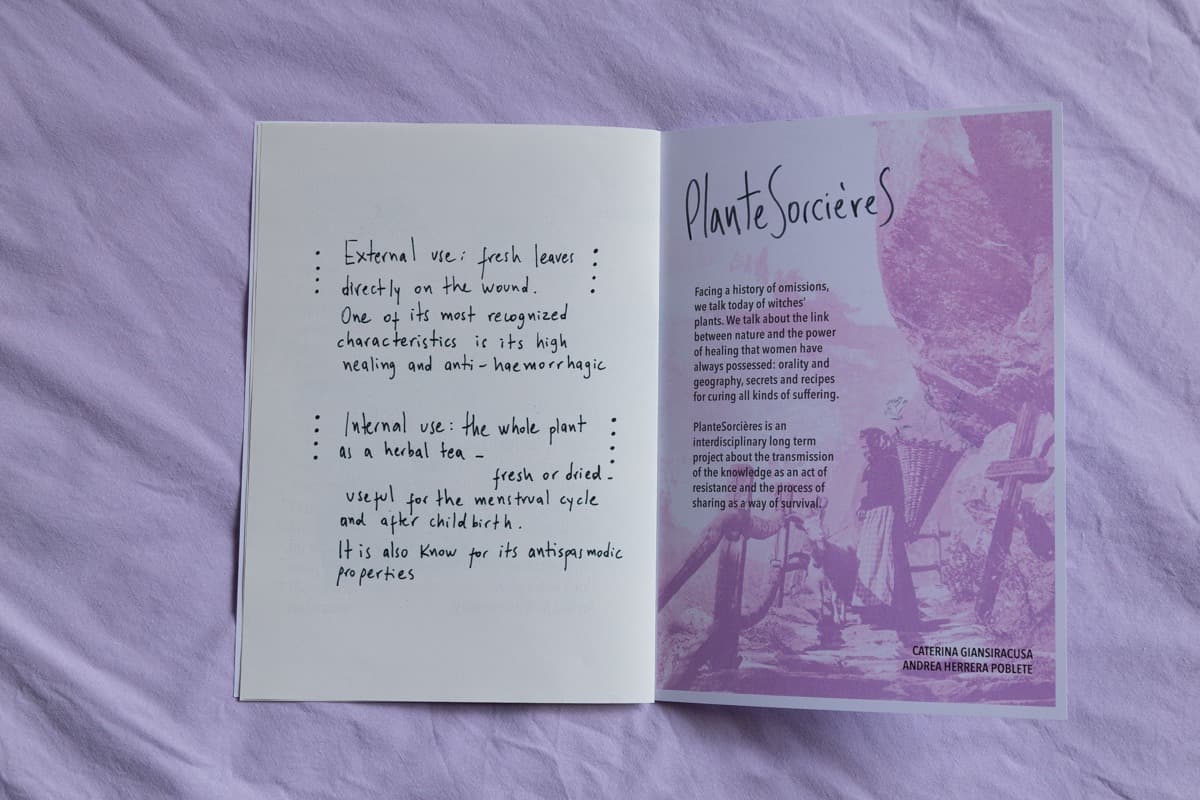 External use: fresh leaves
directly on the wound.
One of its most recognized
characteristics is its high
healing and anti-haemorrhagic
Internal use: the whole plant
as a herbal tea -
fresh or dried -
useful for the menstrual cycle
and after childbirth.
It is also know for its antispasmodic
properties
PlanteSorcières
Facing a history of omissions,
we talk today of witches'
plants. We talk about the link
between nature and the power
of healing that women have
always possessed: orality and
geography, secrets and recipes
for curing all kinds of suffering.
PlanteSorcières is an
interdisciplinary long term
project about the transmission
of the knowledge as an act of
resistance and the process of
sharing as a way of survival.
CATERINA GIANSIRACUSA
ANDREA HERRERA POBLETE